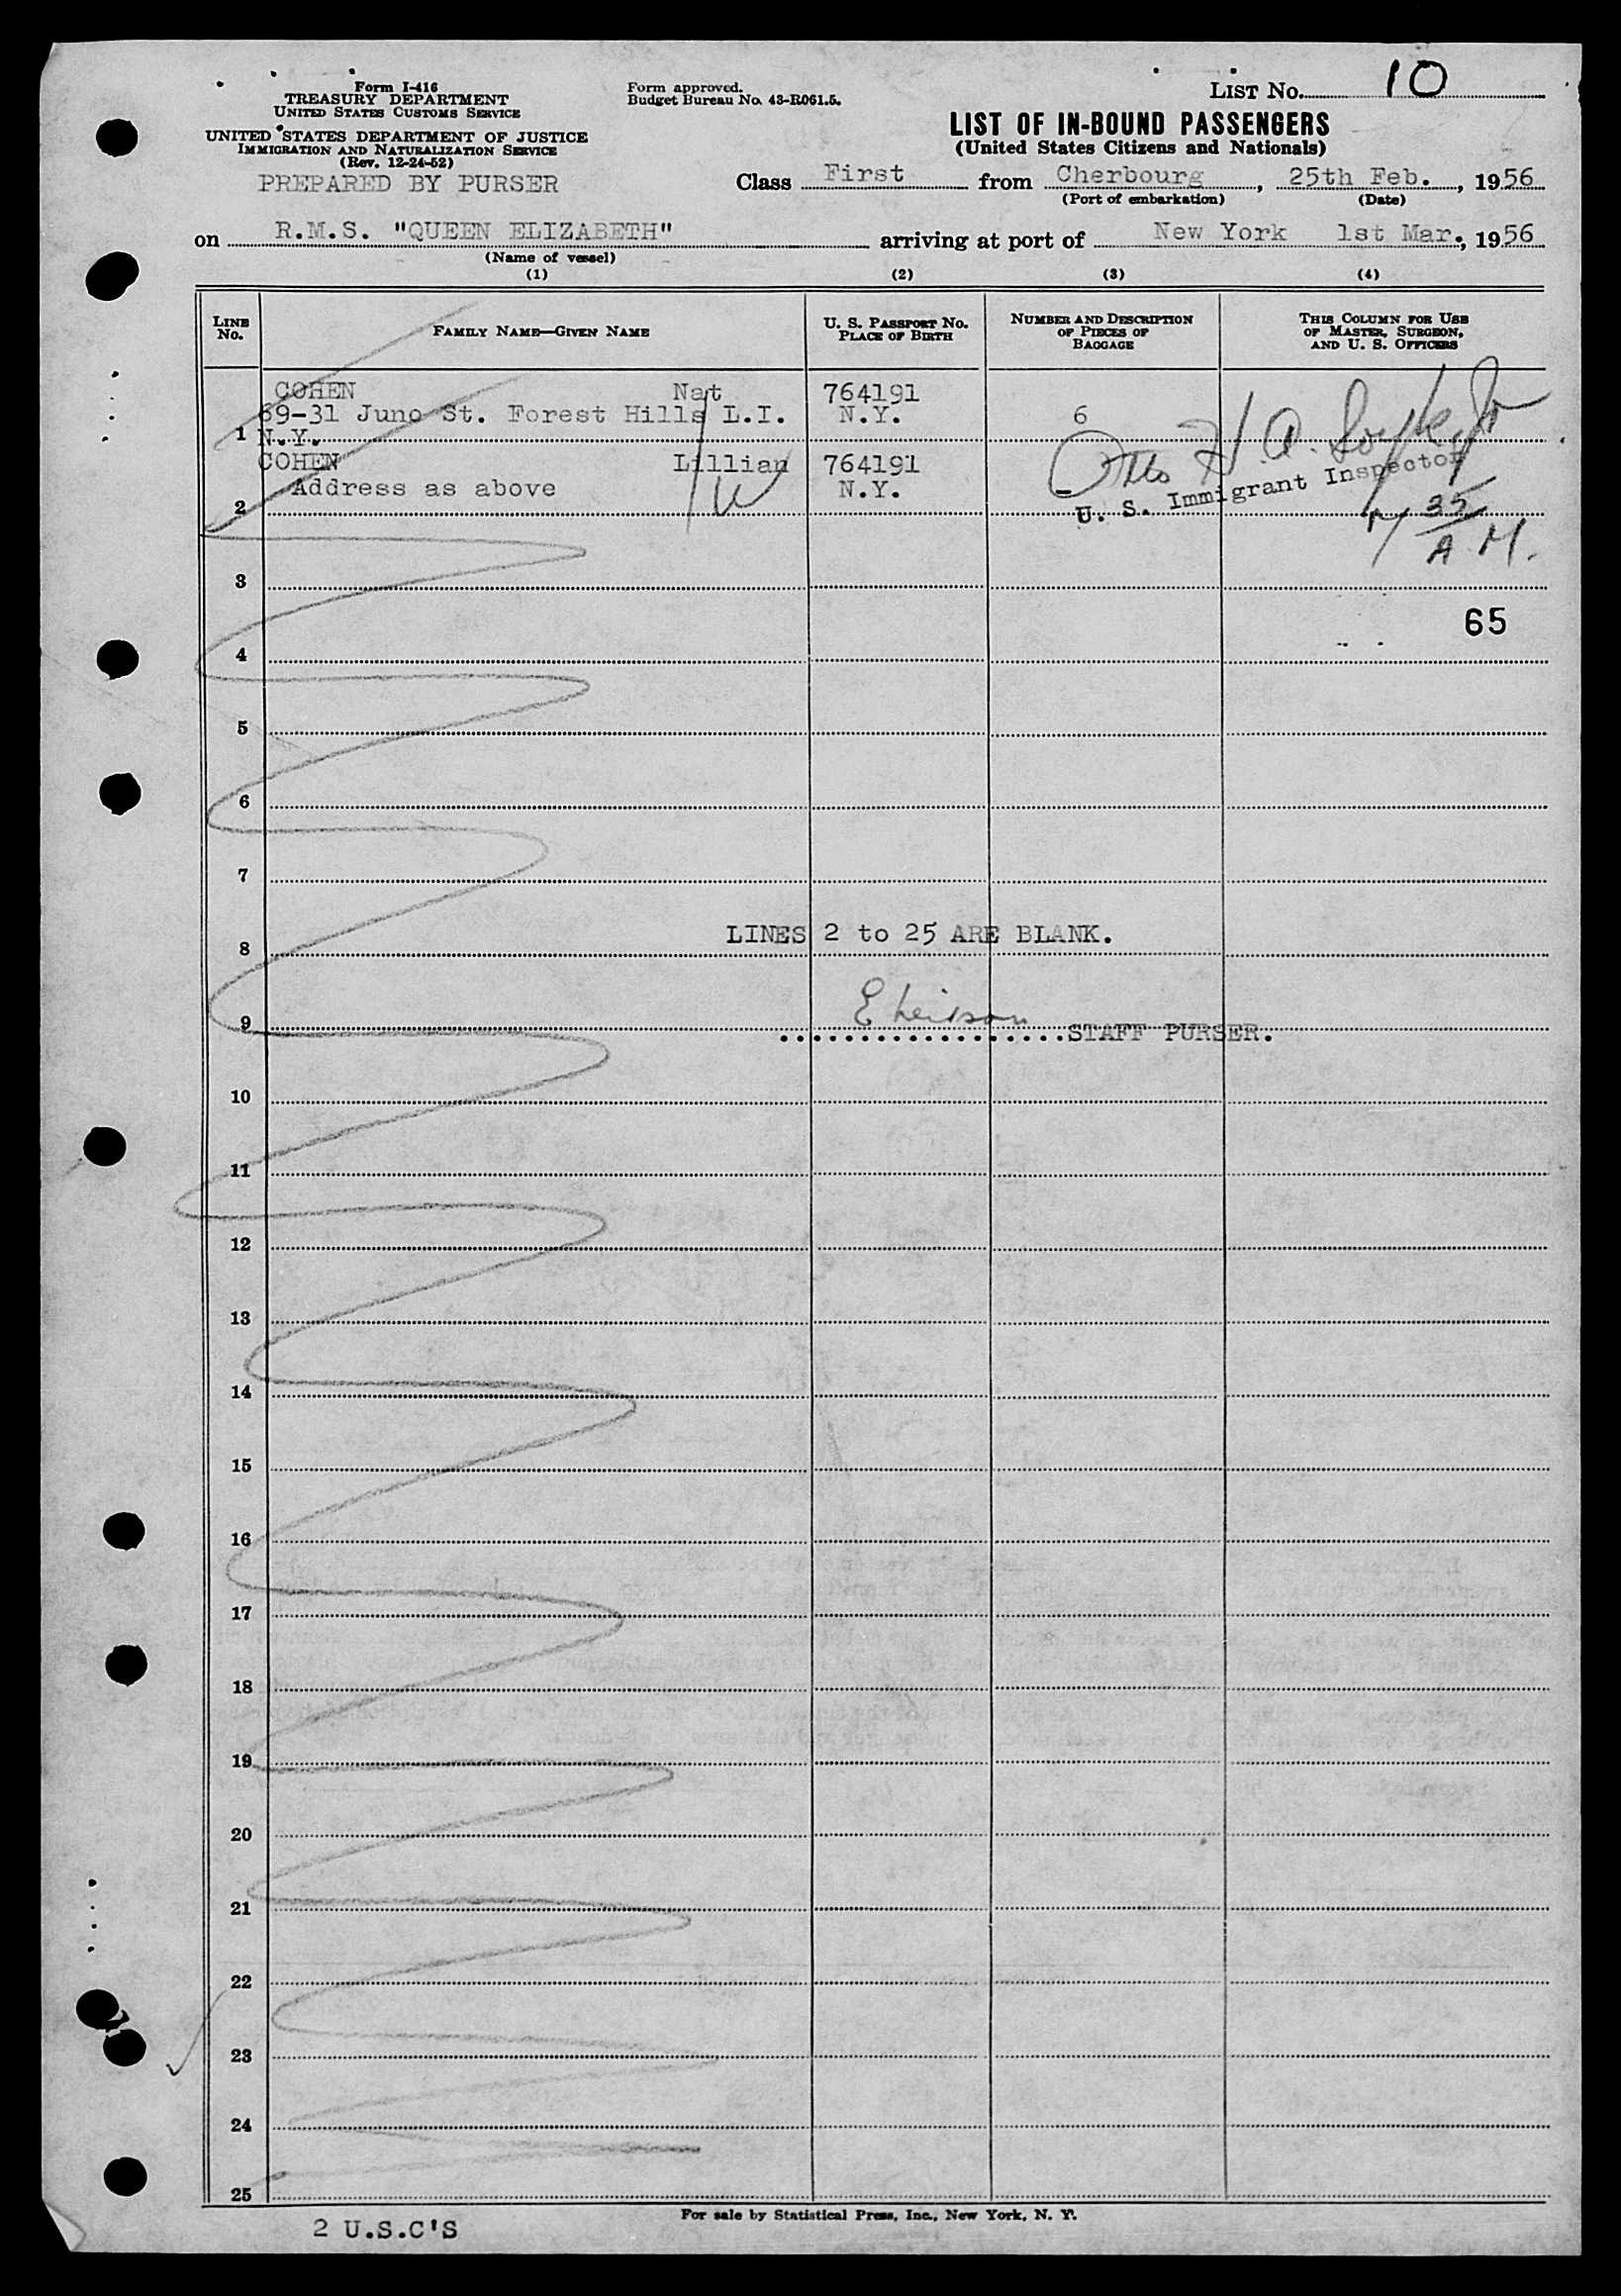 Form I-416
TREASURY DEPARTMENT
UNITED STATES CUSTOMS SERVICE
UNITED STATES DEPARTMENT OF JUSTICE
IMMIGRATION AND NATURALIZATION SERVICE
(Rev. 12-24-52)
PREPARED BY PURSER
Form approved.
Budget Bureau No. 43-R061.5.
LIST NO. 10
LIST OF IN-BOUND PASSENGERS
(United States Citizens and Nationals)
Class First from Cherbourg, 25th Feb., 1956
(Port of embarkation) (Date)
on R.M.S. "QUEEN ELIZABETH" arriving at port of New York 1st Mar., 1956
(Name of vessel)
(1) (2) (3) (4)
LINE NO.
FAMILY NAME—GIVEN NAME
U. S. PASSPORT NO.
PLACE OF BIRTH
NUMBER AND DESCRIPTION
OF PIECES OF
BAGGAGE
THIS COLUMN FOR USE
OF MASTER, SURGEON,
AND U. S. OFFICERS
COHEN Nat 764191
69-31 Juno St. Forest Hills L.I. N.Y. 6
1 N.Y.
COHEN Lillian 764191
Address as above N.Y.
2
H. A.
U. S. Immigrant Inspector
7 35
A.M.
3
65
4
5
6
7
LINES 2 to 25 ARE BLANK.
8
9
STAFF PURSER.
10
11
12
13
14
15
16
17
18
19
20
21
22
23
24
25
For sale by Statistical Press, Inc., New York, N. Y.
2 U.S.C'S